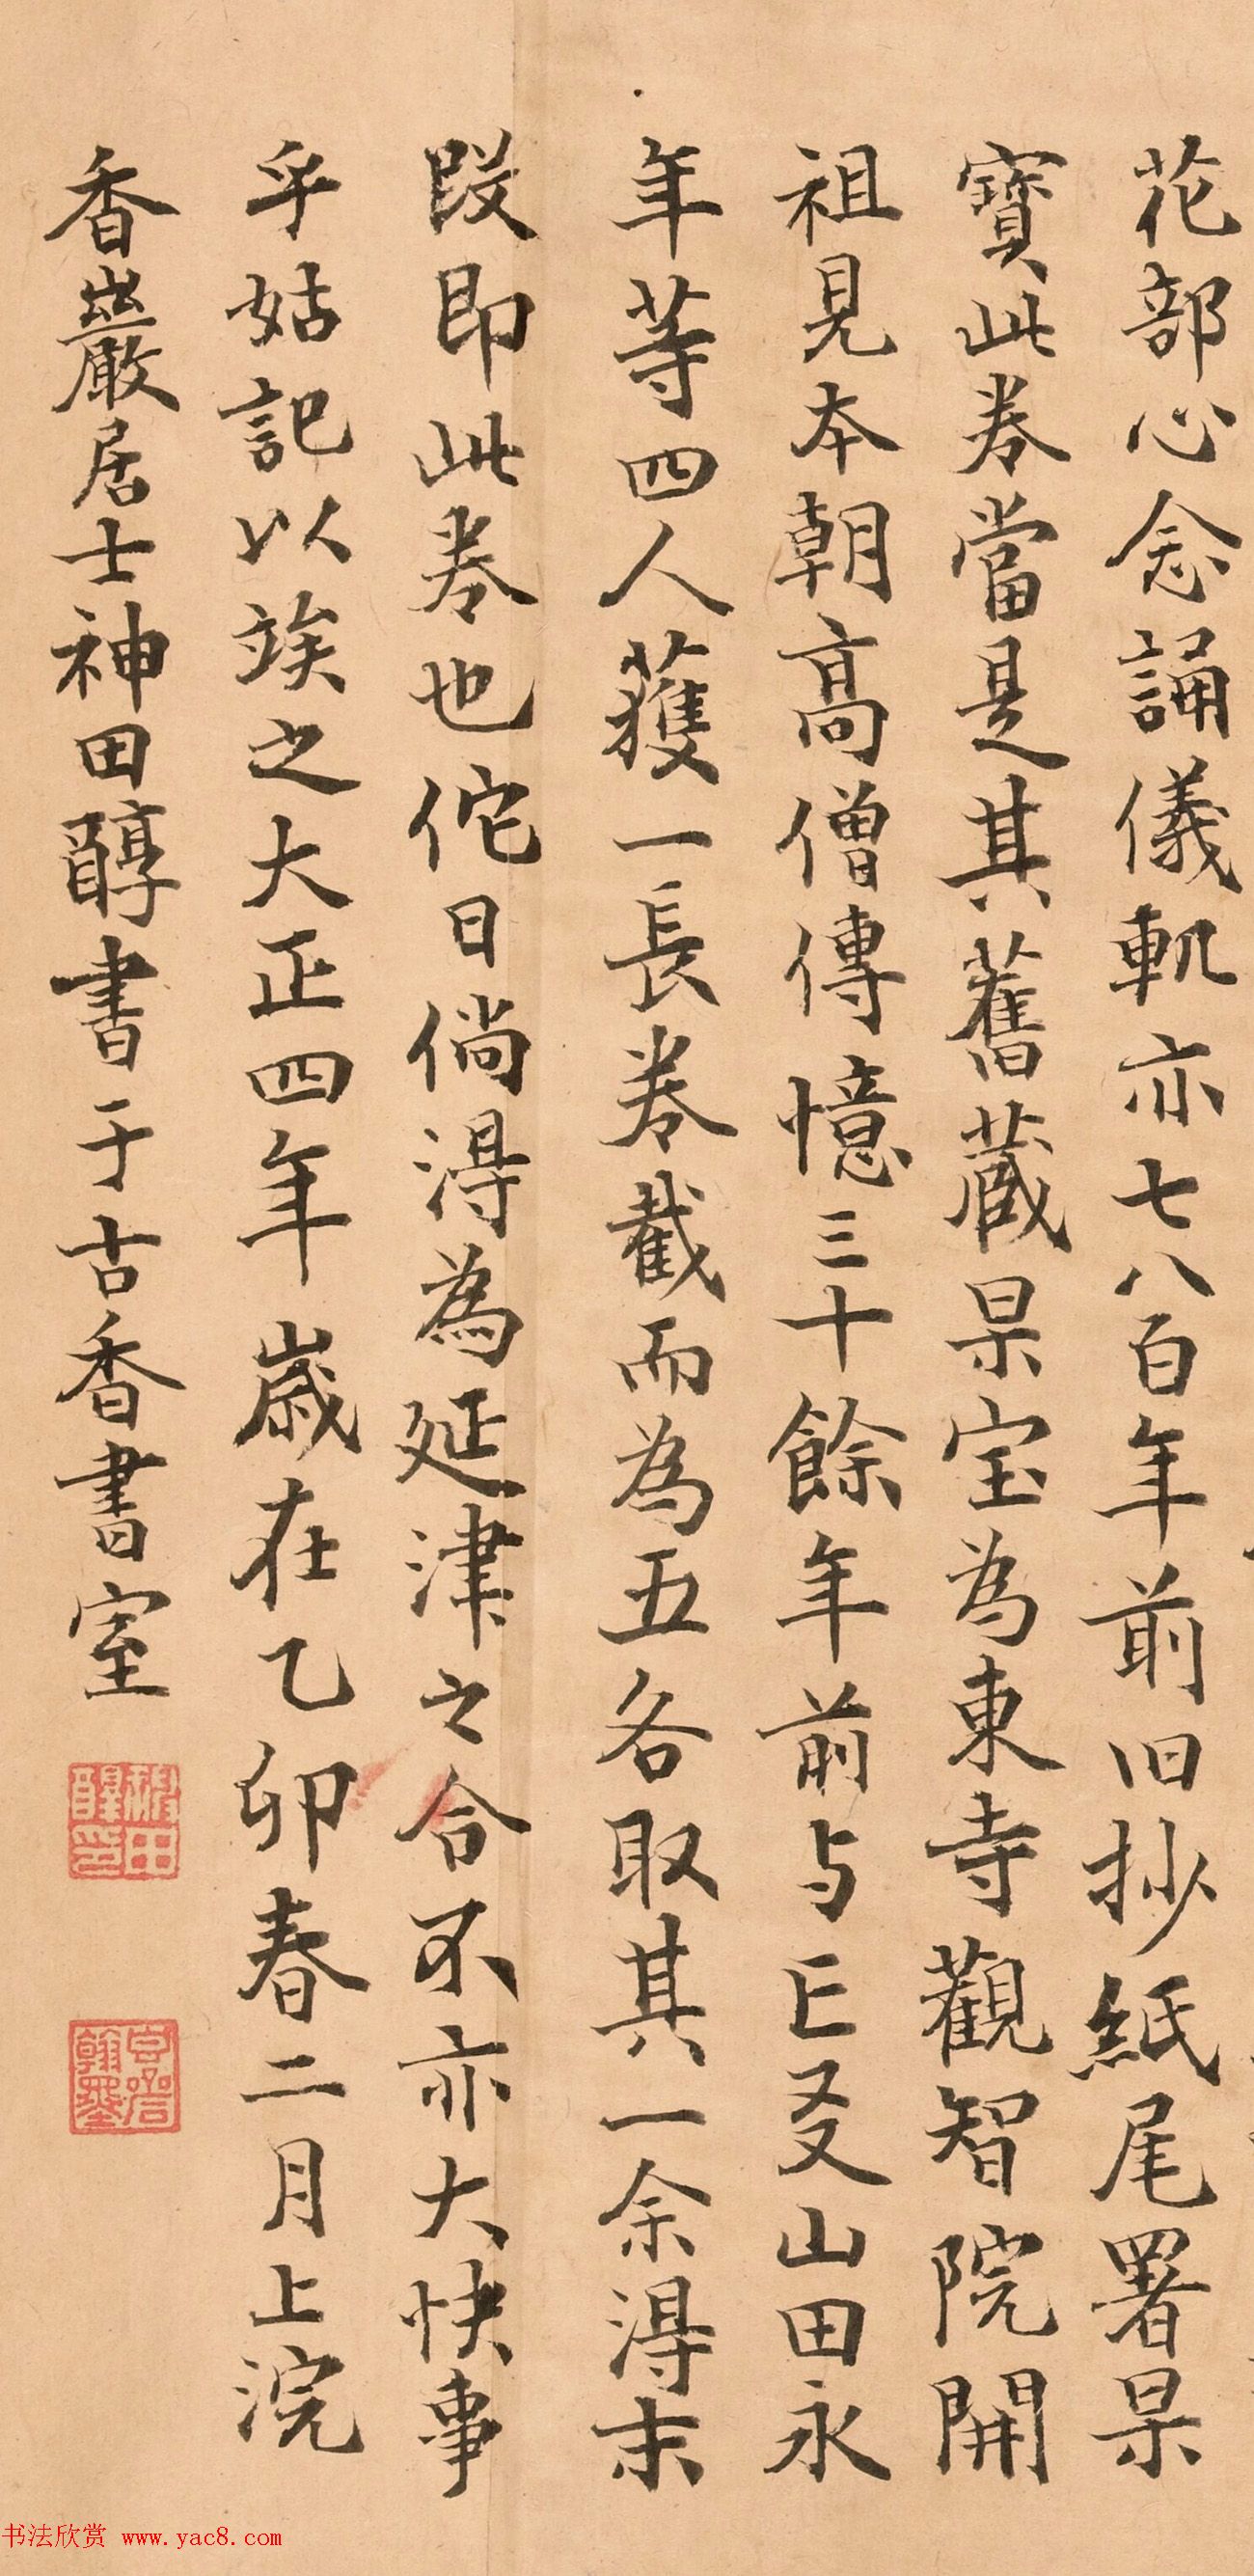 花部心念誦儀軌亦七八百年前旧抄紙尾署杲
寶此卷當是其舊藏杲宝為東寺觀智院開
祖見本朝高僧傳憶三十餘年前与亡友山田永
年等四人獲一長卷截而為五各取其一余得末
段即此卷也佗日倘得為延津之合不亦大快事
乎姑記以竢之大正四年歲在乙卯春二月上浣
香巖居士神田醇書于古香書室
神田醇印
翰墨
书法欣赏 www.yac8.com